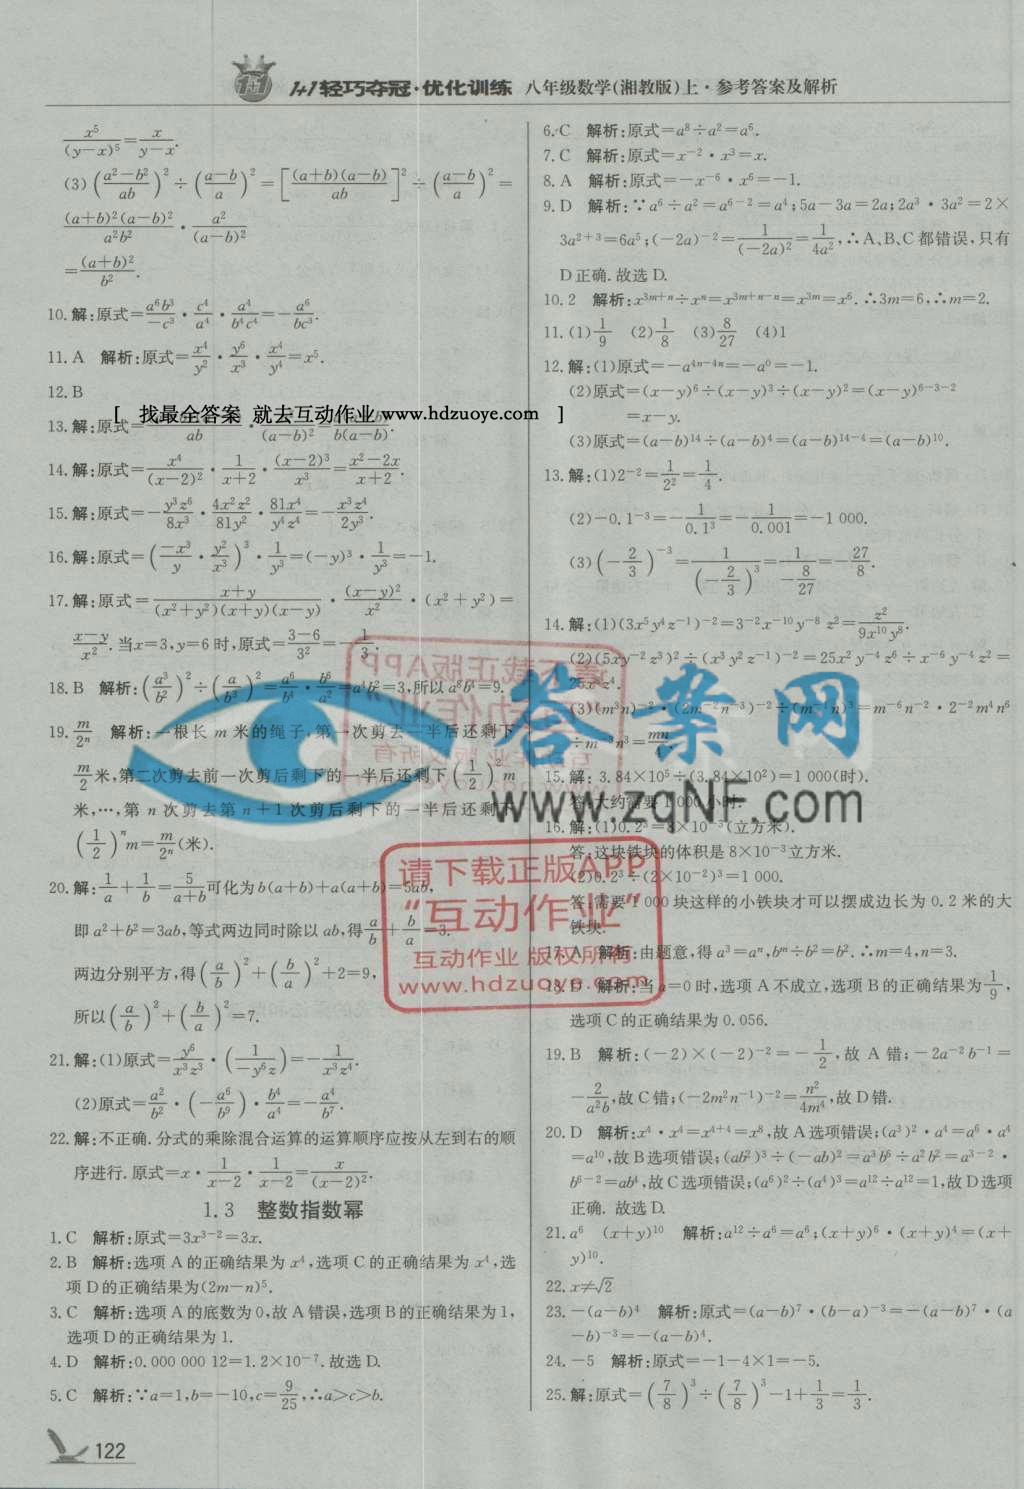 1+1轻巧夺冠·优化训练 八年级数学(湘教版)上·参考答案及解析
x⁵/(y−x)⁵=x/(y−x).
(3)((a²−b²)/ab)²÷((a−b)/a)²=[(a+b)(a−b)/ab]²÷((a−b)/a)²=
(a+b)²(a−b)²/a²b²·a²/(a−b)²
=(a+b)²/b².
10.解:原式=a⁶b³/−c³·c⁴/a⁴·a⁴/b⁴c⁴=−a⁶/bc³.
11.A 解析:原式=x⁴/y²·y⁶/x³·x⁴/y⁴=x⁵.
12.B
[ 找最全答案 就去互动作业 www.hdzuoye.com ]
13.解:原式= ab ·(a−b)²=b(a−b).
14.解:原式=x⁴/(x−2)²·1/(x+2)·(x−2)³/x³=(x²−2x)/(x+2).
15.解:原式=−y³z⁶/8x³·4x²z²/81y²·81x⁴/y⁴z⁴=−x³z⁴/2y³.
16.解:原式=(−x³/y·y²/x³)³·1/y³=(−y)³·1/y³=−1.
17.解:原式=(x+y)/(x²+y²)(x+y)(x−y)·(x−y)²/x²·(x²+y²)=
(x−y)/x².当x=3,y=6时,原式=(3−6)/3²=−1/3.
18.B 解析:(a³/b²)²÷(a/b³)²=a⁶/b⁴·b⁶/a²=a⁴b²=3,所以a⁸b⁴=9.
19.m/2ⁿ 解析:一根长 m 米的绳子,第一次剪去一半后还剩下
m/2米,第二次剪去前一次剪后剩下的一半后还剩下(1/2)²m
米,…,第 n 次剪去第 n+1 次剪后剩下的一半后还剩下
(1/2)ⁿm=m/2ⁿ(米).
20.解:1/a+1/b=5/(a+b)可化为b(a+b)+a(a+b)=5ab,
即a²+b²=3ab,等式两边同时除以ab,得a/b+b/a=3.
两边分别平方,得(a/b)²+(b/a)²+2=9,
所以(a/b)²+(b/a)²=7.
21.解:(1)原式=y⁶/x³z³·(1/−y⁶z)=−1/x³z⁴.
(2)原式=a²/b²·(−a⁶/b⁹)·b⁴/a⁴=−a⁴/b⁷.
22.解:不正确.分式的乘除混合运算的运算顺序应按从左到右的顺
序进行.原式=x·1/(x−2)·1/(x−2)=x/(x−2)².
1.3 整数指数幂
1.C 解析:原式=3x³⁻²=3x.
2.B 解析:选项A的正确结果为x⁴,选项C的正确结果为x⁴,选
项D的正确结果为(2m−n)⁵.
3.C 解析:选项A的底数为0,故A错误,选项B的正确结果为1,
选项D的正确结果为1.
4.D 解析:0.000 000 12=1.2×10⁻⁷.故选D.
5.C 解析:∵a=1,b=−10,c=9/25,∴a>c>b.
122
6.C 解析:原式=a⁸÷a²=a⁶.
7.C 解析:原式=x⁻²·x³=x.
8.A 解析:原式=−x⁻⁶·x⁶=−1.
9.D 解析:∵a⁶÷a²=a⁶⁻²=a⁴;5a−3a=2a;2a³·3a²=2×
3a²⁺³=6a⁵;(−2a)⁻²=1/(−2a)²=1/4a²,∴A、B、C都错误,只有
D正确.故选D.
10.2 解析:x³ᵐ⁺ⁿ÷xⁿ=x³ᵐ⁺ⁿ⁻ⁿ=x³ᵐ=x⁶.∴3m=6,∴m=2.
11.(1)1/9 (2)1/8 (3)8/27 (4)1
12.解:(1)原式=−a⁴ⁿ⁻⁴ⁿ=−a⁰=−1.
(2)原式=(x−y)⁶÷(x−y)³÷(x−y)²=(x−y)⁶⁻³⁻²
=x−y.
(3)原式=(a−b)¹⁴÷(a−b)⁴=(a−b)¹⁴⁻⁴=(a−b)¹⁰.
13.解:(1)2⁻²=1/2²=1/4.
(2)−0.1⁻³=−1/0.1³=−1/0.001=−1 000.
(3)(−2/3)⁻³=1/(−2/3)³=1/(−8/27)=−27/8.
14.解:(1)(3x⁵y⁴z⁻¹)⁻²=3⁻²x⁻¹⁰y⁻⁸z²=z²/9x¹⁰y⁸.
(2)(5xy⁻²z³)²÷(x³y²z⁻¹)⁻²=25x²y⁻⁴z⁶÷x⁻⁶y⁻⁴z²=
25x⁸z⁴.
(3)(m³n)⁻²·(2m⁻²n⁻³)⁻²÷(m⁻¹n)³=m⁻⁶n⁻²·2⁻²m⁴n⁶
÷m⁻³n³=mn/4.
15.解: 3.84×10⁵÷(3.84×10²)=1 000(时).
答:大约需要1 000小时.
16.解:(1)0.2³=8×10⁻³(立方米).
答:这块铁块的体积是8×10⁻³立方米.
(2)0.2³÷(2×10⁻²)³=1 000.
答:需要1 000块这样的小铁块才可以摆成边长为0.2米的大
铁块.
17.A 解析:由题意,得a³=aⁿ,bᵐ÷b²=b².∴m=4,n=3.
18.D 解析:当a=0时,选项A不成立,选项B的正确结果为1/9,
选项C的正确结果为0.056.
19.B 解析:(−2)×(−2)⁻²=−1/2,故A错;−2a⁻²b⁻¹=
−2/a²b,故C错;(−2m²n⁻¹)⁻²=n²/4m⁴,故D错.
20.D 解析:x⁴·x⁴=x⁴⁺⁴=x⁸,故A选项错误;(a³)²·a⁴=a⁶·a⁴
=a¹⁰,故B选项错误;(ab²)³÷(−ab)²=a³b⁶÷a²b²=a³⁻²·
b⁶⁻²=ab⁴,故C选项错误;(a⁶)²÷(a⁴)³=a¹²÷a¹²=1,故D选项
正确.故选D.
21.a⁶ (x+y)¹⁰ 解析:a¹²÷a⁶=a⁶;(x+y)⁶·(x+y)⁴=(x+
y)¹⁰.
22.x≠√2
23.−(a−b)⁴ 解析:原式=(a−b)⁷·(b−a)⁻³=−(a−b)⁷·(a
−b)⁻³=−(a−b)⁴.
24.−5 解析:原式=−1−4×1=−5.
25.解:原式=(7/8)³÷(7/8)³−1+1/3=1/3.
答案网
www.zqNF.com
请下载正版APP
“互动作业”
互动作业 版权所有
www.hdzuoye.com